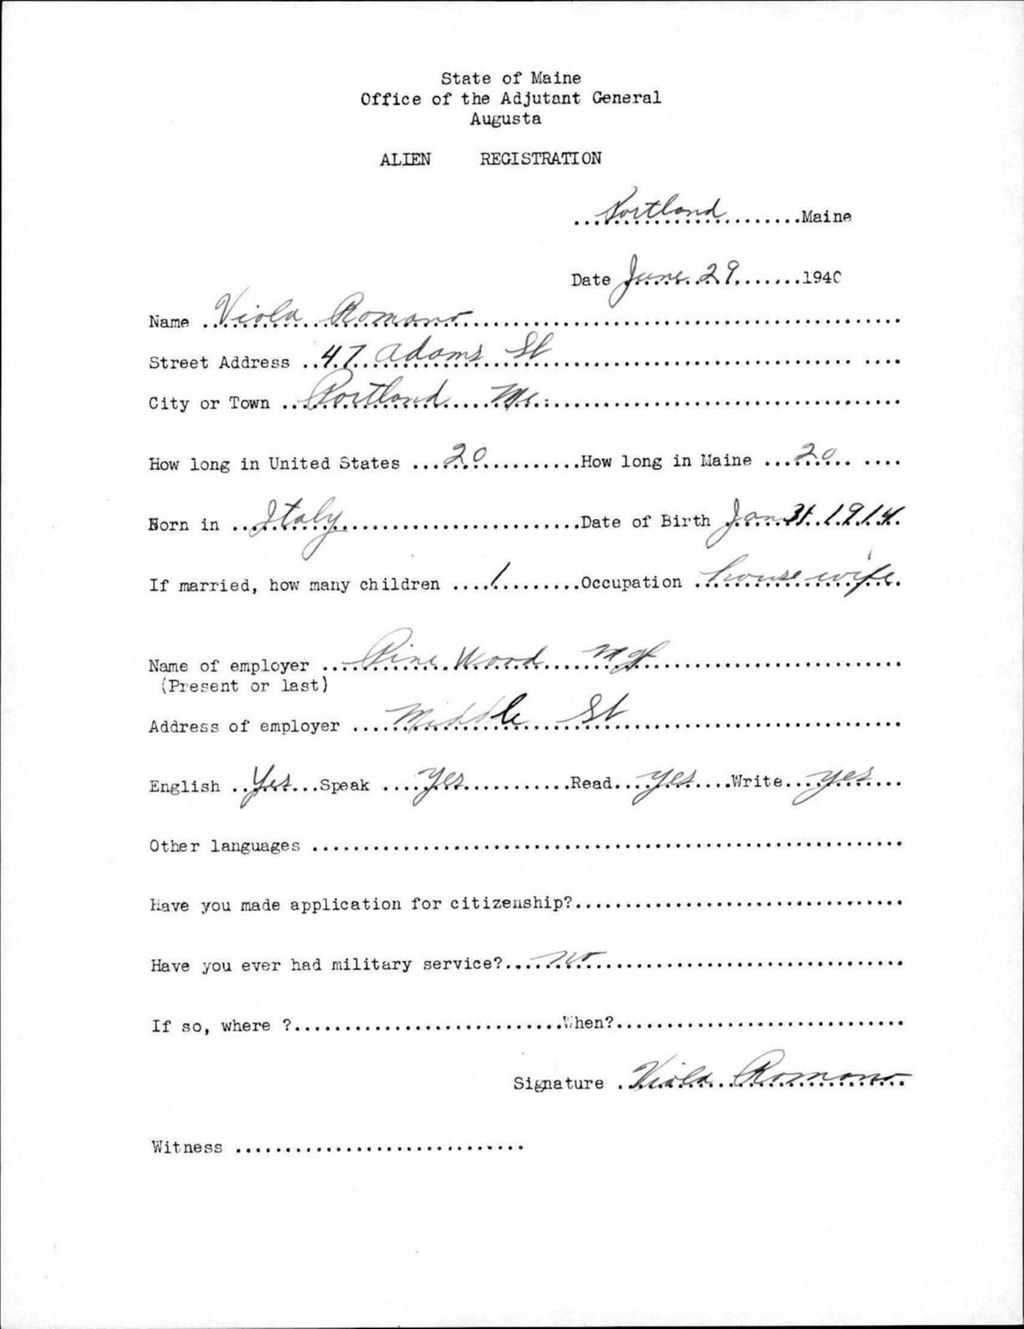 State of Maine
Office of the Adjutant General
Augusta
ALIEN REGISTRATION
Portland Maine
Date June 29 1940
Name Viola Romano
Street Address 47 Adams St
City or Town Portland Me.
How long in United States 20 How long in Maine 20
Born in Italy Date of Birth Jan 31 1914
If married, how many children 1 Occupation housewife
Name of employer Pine Wood Mf
(Present or last)
Address of employer Middle St
English Yes Speak Yes Read Yes Write Yes
Other languages
Have you made application for citizenship?
Have you ever had military service? no
If so, where ? When?
Signature Viola Romano
Witness